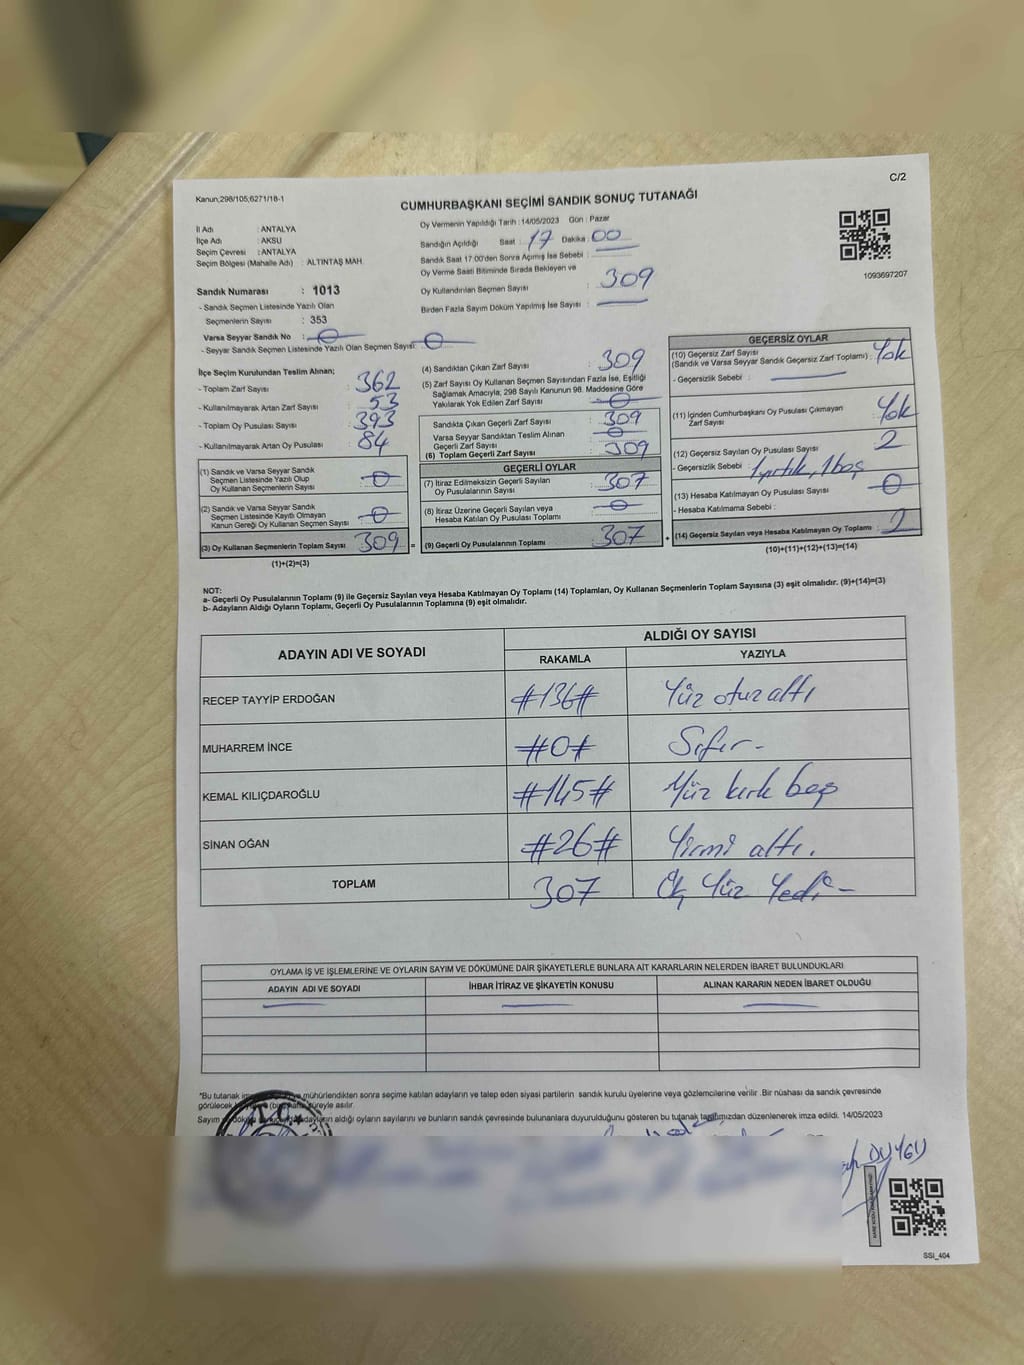 C/2
Kanun;298/105;6271/18-1
CUMHURBAŞKANI SEÇİMİ SANDIK SONUÇ TUTANAĞI
İl Adı : ANTALYA
İlçe Adı : AKSU
Seçim Çevresi : ANTALYA
Seçim Bölgesi (Mahalle Adı) : ALTINTAŞ MAH.
Sandık Numarası : 1013
- Sandık Seçmen Listesinde Yazılı Olan
Seçmenlerin Sayısı : 353
Varsa Seyyar Sandık No : 0
- Seyyar Sandık Seçmen Listesinde Yazılı Olan Seçmen Sayısı: 0
Oy Vermenin Yapıldığı Tarih : 14/05/2023 Gün : Pazar
Sandığın Açıldığı Saat : 17 Dakika : 00
Sandık Saat 17:00'den Sonra Açımış İse Sebebi :
Oy Verme Saati Bitiminde Sırada Bekleyen ve
Oy Kullandırılan Seçmen Sayısı : 309
Birden Fazla Sayım Döküm Yapılmış İse Sayısı :
1093697207
İlçe Seçim Kurulundan Teslim Alınan;
- Toplam Zarf Sayısı : 362
- Kullanılmayarak Artan Zarf Sayısı : 53
- Toplam Oy Pusulası Sayısı : 393
- Kullanılmayarak Artan Oy Pusulası : 84
(1) Sandık ve Varsa Seyyar Sandık
Seçmen Listesinde Yazılı Olup
Oy Kullanan Seçmenlerin Sayısı : 0
(2) Sandık ve Varsa Seyyar Sandık
Seçmen Listesinde Kayıtlı Olmayan
Kanun Gereği Oy Kullanan Seçmen Sayısı : 0
(3) Oy Kullanan Seçmenlerin Toplam Sayısı : 309 =
(1)+(2)=(3)
(4) Sandıktan Çıkan Zarf Sayısı : 309
(5) Zarf Sayısı Oy Kullanan Seçmen Sayısından Fazla İse, Eşitliği
Sağlamak Amacıyla; 298 Sayılı Kanunun 98. Maddesine Göre
Yakılarak Yok Edilen Zarf Sayısı : 0
Sandıkta Çıkan Geçerli Zarf Sayısı : 309
Varsa Seyyar Sandıktan Teslim Alınan
Geçerli Zarf Sayısı : 0
(6) Toplam Geçerli Zarf Sayısı : 309
GEÇERLİ OYLAR
(7) İtiraz Edilmeksizin Geçerli Sayılan
Oy Pusulalarının Sayısı : 307
(8) İtiraz Üzerine Geçerli Sayılan veya
Hesaba Katılan Oy Pusulası Toplamı : 0
(9) Geçerli Oy Pusulalarının Toplamı : 307 +
GEÇERSİZ OYLAR
(10) Geçersiz Zarf Sayısı
(Sandık ve Varsa Seyyar Sandık Geçersiz Zarf Toplamı) : Yok
- Geçersizlik Sebebi :
(11) İçinden Cumhurbaşkanı Oy Pusulası Çıkmayan
Zarf Sayısı : Yok
(12) Geçersiz Sayılan Oy Pusulası Sayısı : 2
- Geçersizlik Sebebi : 1 yırtık, 1 boş
(13) Hesaba Katılmayan Oy Pusulası Sayısı : 0
- Hesaba Katılmama Sebebi :
(14) Geçersiz Sayılan veya Hesaba Katılmayan Oy Toplamı : 2
(10)+(11)+(12)+(13)=(14)
NOT:
a- Geçerli Oy Pusulalarının Toplamı (9) ile Geçersiz Sayılan veya Hesaba Katılmayan Oy Toplamı (14) Toplamları, Oy Kullanan Seçmenlerin Toplam Sayısına (3) eşit olmalıdır. (9)+(14)=(3)
b- Adayların Aldığı Oyların Toplamı, Geçerli Oy Pusulalarının Toplamına (9) eşit olmalıdır.
ADAYIN ADI VE SOYADI
ALDIĞI OY SAYISI
RAKAMLA YAZIYLA
RECEP TAYYİP ERDOĞAN #136# Yüz otuz altı
MUHARREM İNCE #0# Sıfır-
KEMAL KILIÇDAROĞLU #145# Yüz kırk beş
SİNAN OĞAN #26# Yirmi altı.
TOPLAM 307 Üç Yüz Yedi-
OYLAMA İŞ VE İŞLEMLERİNE VE OYLARIN SAYIM VE DÖKÜMÜNE DAİR ŞİKAYETLERLE BUNLARA AİT KARARLARIN NELERDEN İBARET BULUNDUKLARI
ADAYIN ADI VE SOYADI İHBAR İTİRAZ VE ŞİKAYETİN KONUSU ALINAN KARARIN NEDEN İBARET OLDUĞU
*Bu tutanak mühürlendikten sonra seçime katılan adayların ve talep eden siyasi partilerin sandık kurulu üyelerine veya gözlemcilerine verilir .Bir nüshası da sandık çevresinde
görülecek süreyle asılır.
Sayım aldığı oyların sayılarını ve bunların sandık çevresinde bulunanlara duyurulduğunu gösteren bu tutanak tarafımızdan düzenlenerek imza edildi. 14/05/2023
T.C.
SSI_404